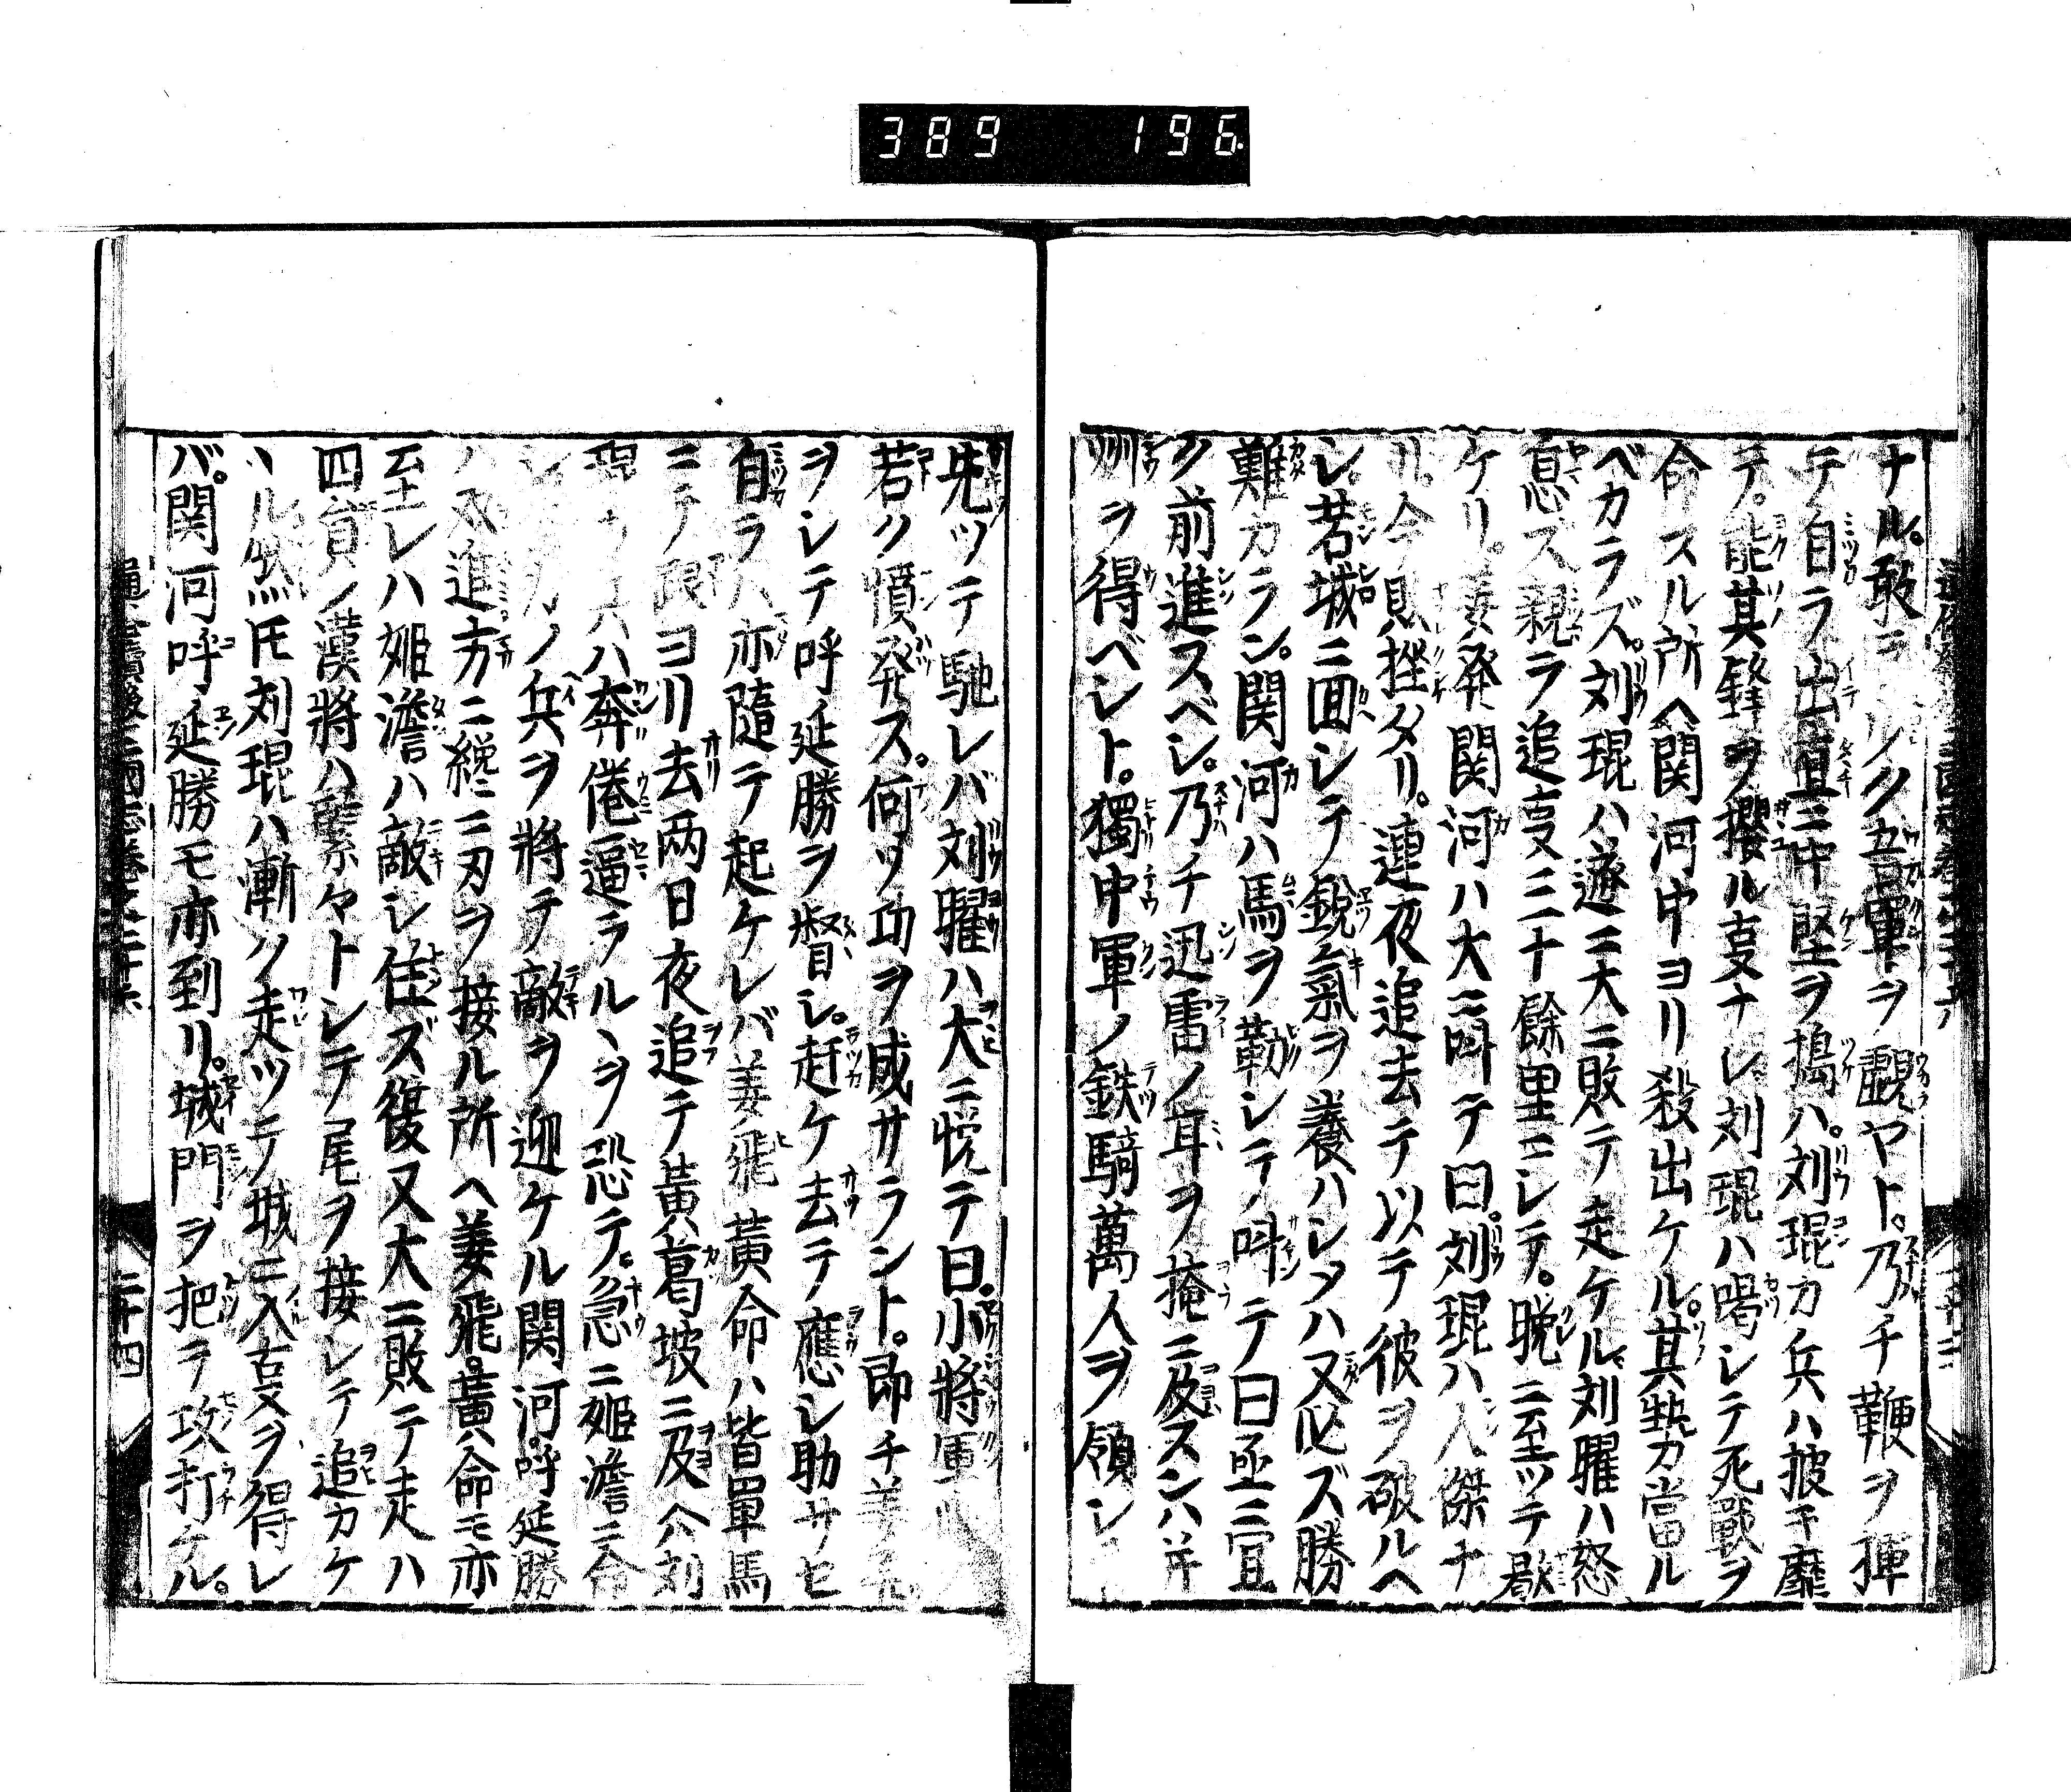 389 196
ナル。敢テ ルク吾軍ヲ覷ヤト。乃チ鞭ヲ揮
テ自ラ出直ニ中堅ヲ搗ハ。刘琨カ兵ハ披キ靡
テ。能其鋒ヲ攖ル叓ナレ刘琨ハ喝シテ死戰ヲ
命スル所ヘ関河中ヨリ殺出ケル。其勢力當ル
ベカラズ。刘琨ハ遂ニ大ニ敗テ走ケル。刘曜ハ怒
息ス親ラ追叓三十餘里ニシテ。晩ニ至ツテ歇
ケリ。姜發関河ハ大ニ呌テ曰。刘琨ハ人傑ナ
リ。今 挫タリ。連夜追去テ以テ彼ヲ破ルヘ
シ。若城ニ囬シテ銳氣ヲ養ハシメハ又必ズ勝
難カラン。関河ハ馬ヲ勒シテ呌テ曰亟ニ宜
ク前進スベシ。乃チ迅雷ノ耳ヲ掩ニ及スンハ并
州ヲ得ベシト。獨中軍ノ鉄騎萬人ヲ領シ
先ツテ馳レバ刘曜ハ大ニ悦テ曰。小將軍
若ク憤発ス。何ソ功ヲ成サラント。即チ姜飛
ヲシテ呼延勝ヲ督シ。赶ケ去テ應シ助サセ
自ラハ亦隨テ起ケレバ姜飛黃命ハ皆軍馬
ニテ ヨリ去兩日夜追テ黃葛坡ニ及ヘハ刘
琨カ兵ハ奔倦逼ラルヽヲ恐テ。急ニ姫澹ニ命
シ ノ兵ヲ將テ敵ヲ迎ケル関河。呼延勝
ハ双進方ニ纔ニ刃ヲ接ル所ヘ姜飛。黃命モ亦
至レハ姫澹ハ敵シ住ズ復又大ニ敗テ走ハ
四員ノ漢將ハ緊々トシテ尾ヲ接シテ追カケ
ヽル然氏刘琨ハ漸ク走ツテ城ニ入叓ヲ得レ
バ。関河呼延勝モ亦到リ。城門ヲ把テ攻打ケル。
二十四